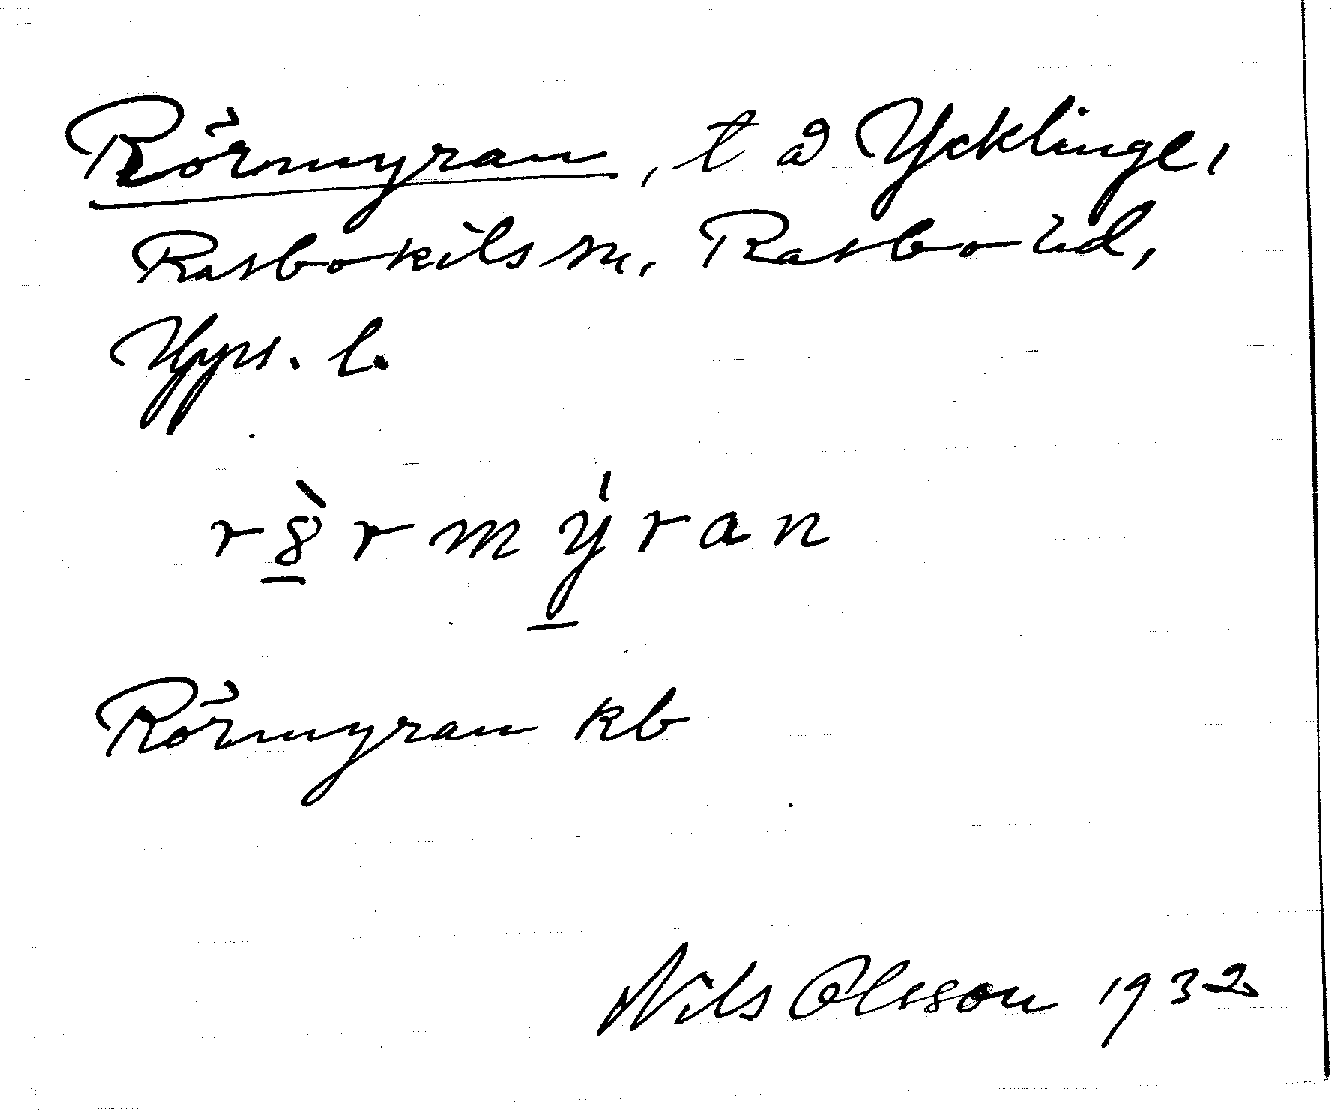 Rörmyran, t å Ycklinge,
Rasbokils sn, Rasbo hd,
Upps. l.
rö̀rmýran
Rörmyran kb
Nils Olsson 1932